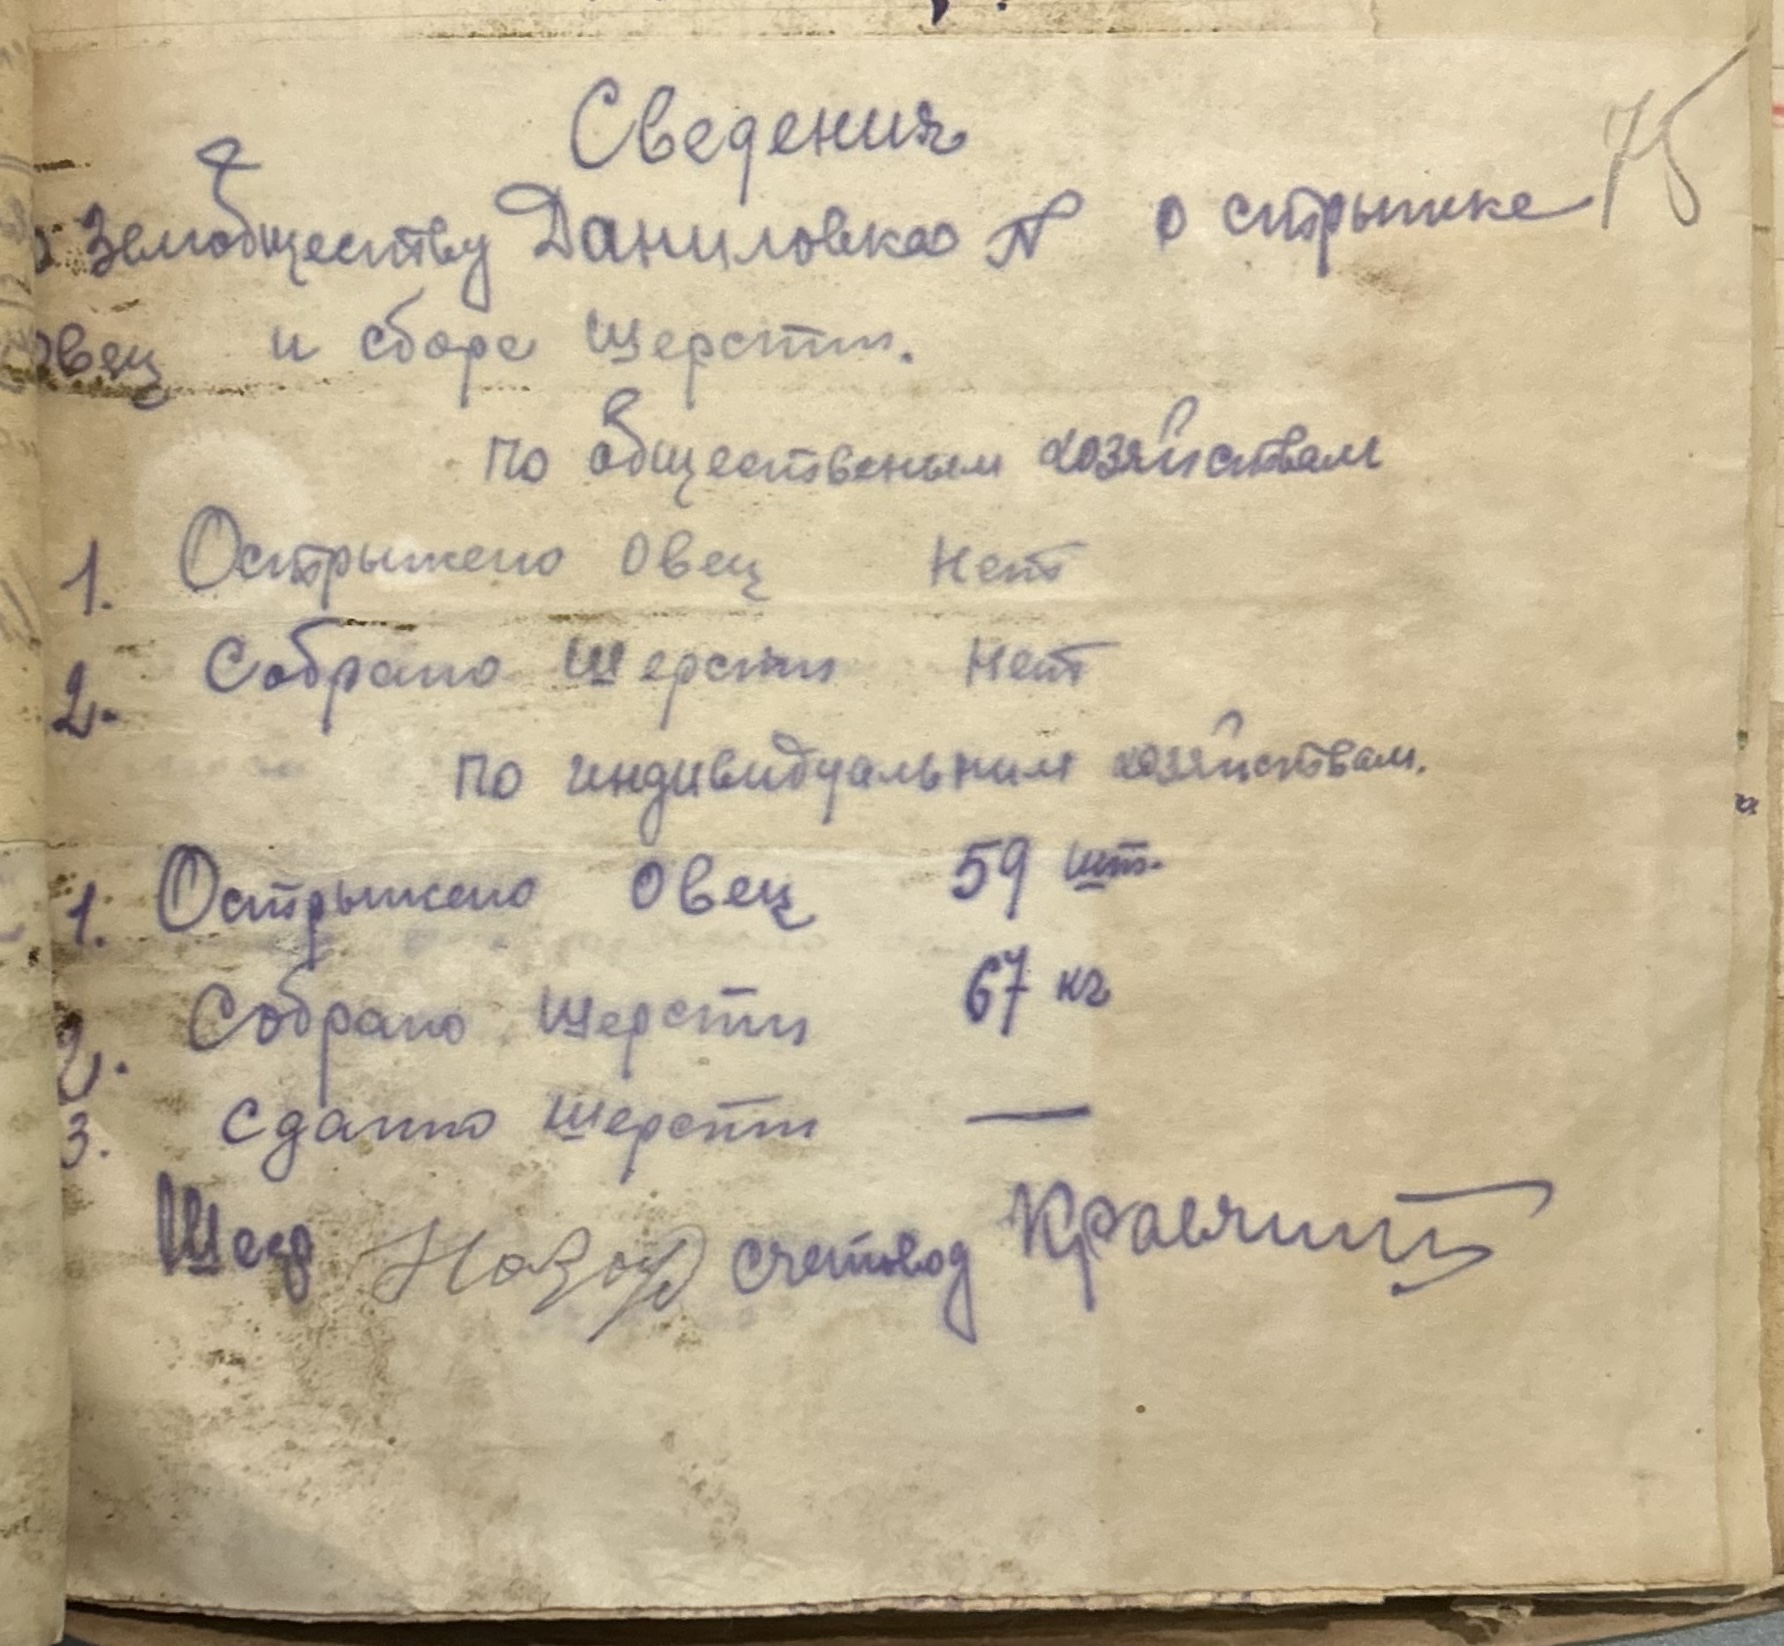 75
Сведения
о Земобществу Даниловка о стрыжке
Овец и сборе шерсти.
по общественым хозяйствам
1. Острыжено Овец Нет
2. Собрано шерсти Нет
по индивидуальним хозяйствам.
1. Острыжено Овец 59 шт.
2. Собрано шерсти 67 кг
3. Сданно шерсти —
счетовод